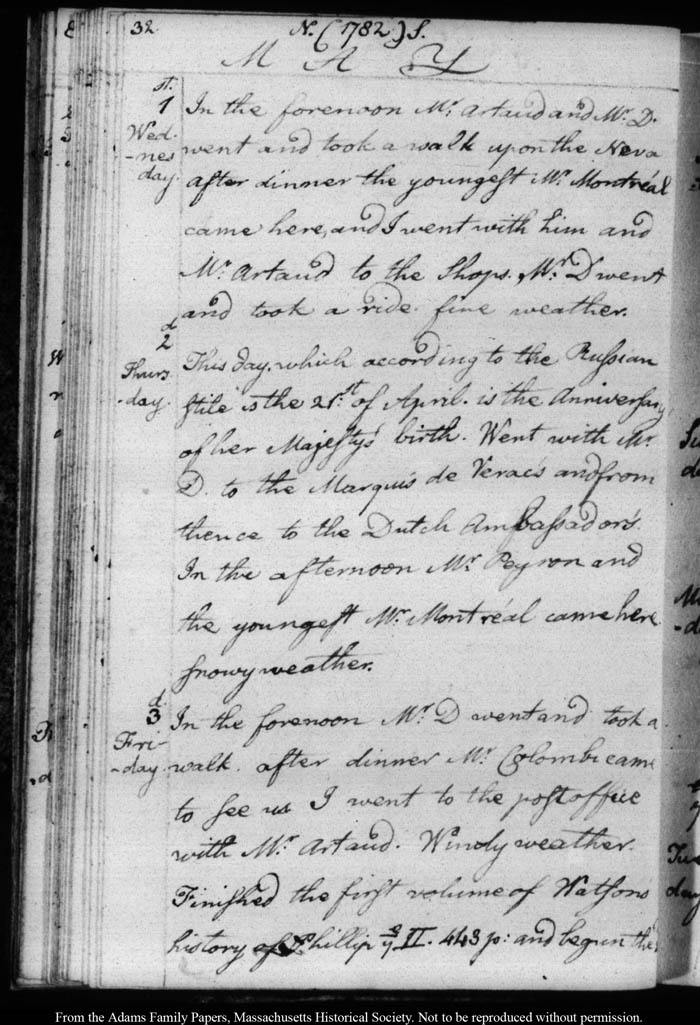 32
N. (1782.) S.
M A Y
1st.
Wed-
-nes
day.
In the forenoon Mr. Artaud and Mr. D.
went and took a walk upon the Neva
after dinner the youngest Mr. Montréal
came here, and I went with him and
Mr. Artaud to the Shops. Mr. D went
and took a ride. fine weather.
2d
Thurs
-day.
This day, which according to the Russian
stile is the 21st. of April. is the Anniversary
of her Majesty's birth. Went with Mr.
D. to the Marquis de Verac's and from
thence to the Dutch Ambassadors.
In the afternoon Mr. Peyron and
the youngest Mr. Montréal came here
snowy weather.
3d
Fri-
-day.
In the forenoon Mr. D went and took a
walk. after dinner Mr. Colombi came
to see us I went to the post office
with Mr. Artaud. Windy weather.
Finished the first volume of Watsons
history of Phillip ye. II. 443 p: and begun the
From the Adams Family Papers, Massachusetts Historical Society. Not to be reproduced without permission.